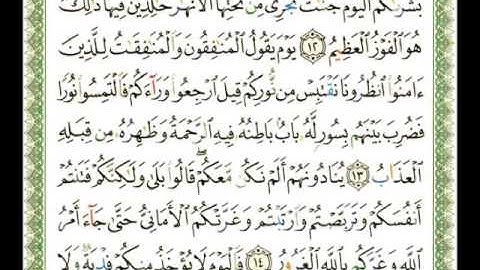 بُشْرَىٰكُمُ ٱلْيَوْمَ جَنَّٰتٌ تَجْرِى مِن تَحْتِهَا ٱلْأَنْهَٰرُ خَٰلِدِينَ فِيهَا ذَٰلِكَ
هُوَ ٱلْفَوْزُ ٱلْعَظِيمُ ١٢ يَوْمَ يَقُولُ ٱلْمُنَٰفِقُونَ وَٱلْمُنَٰفِقَٰتُ لِلَّذِينَ
ءَامَنُوا۟ ٱنظُرُونَا نَقْتَبِسْ مِن نُّورِكُمْ قِيلَ ٱرْجِعُوا۟ وَرَآءَكُمْ فَٱلْتَمِسُوا۟ نُورًا
فَضُرِبَ بَيْنَهُم بِسُورٍ لَّهُۥ بَابٌۢ بَاطِنُهُۥ فِيهِ ٱلرَّحْمَةُ وَظَٰهِرُهُۥ مِن قِبَلِهِ
ٱلْعَذَابُ ١٣ يُنَادُونَهُمْ أَلَمْ نَكُن مَّعَكُمْ ۖ قَالُوا۟ بَلَىٰ وَلَٰكِنَّكُمْ فَتَنتُمْ
أَنفُسَكُمْ وَتَرَبَّصْتُمْ وَٱرْتَبْتُمْ وَغَرَّتْكُمُ ٱلْأَمَانِىُّ حَتَّىٰ جَآءَ أَمْرُ
ٱللَّهِ وَغَرَّكُم بِٱللَّهِ ٱلْغَرُورُ ١٤ فَٱلْيَوْمَ لَا يُؤْخَذُ مِنكُمْ فِدْيَةٌ وَلَا